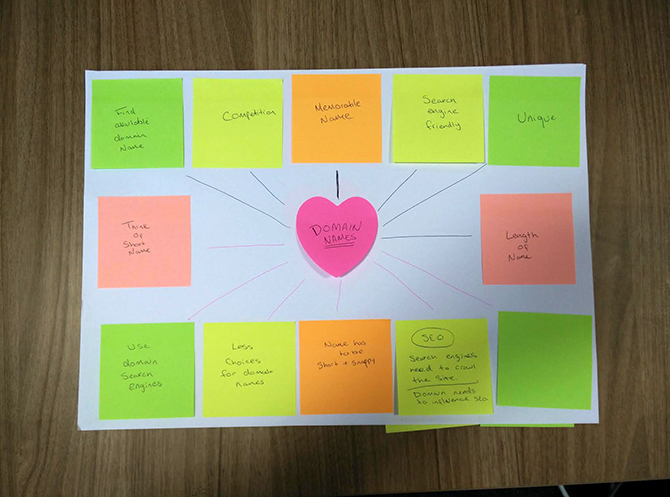 Find
available
domain
Name
Competition
Memorable
Name
Search
engine
friendly
Unique
Think
of
Short
Name
DOMAIN
NAMES
Length
of
Name
Use
domain
Search
Engines
Less
Choices
for domain
names
Name has
to be
Short + Snappy
SEO
Search engines
need to crawl
the site
Domain needs
to influence SEO